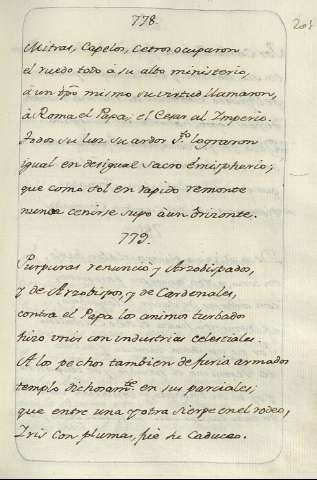 778.
203
Mitras, Capelos, Cetros ocuparon
el ruedo todo à su alto ministerio,
à un tpõ mismo su virtud llamaron,
à Roma, el Papa; el Cesar al Imperio.
Todos su luz su ardor
lograron
igual en desigual sacro émispherio;
que como Sol en rapido remonte
nunca ceñirse supo à un Orizonte.
779.
Purpuras renunciò y Arzobispados,
y de Arzobispos, y de Cardenales,
contra el Papa los animos turbados
hizo vnir con industrias celestiales.
A los pechos tambien de furia armados
templo dichosamte. en sus parciales;
que entre una y otra sierpe en el rodeo,
Iris con plumas, fue su Caduceo.